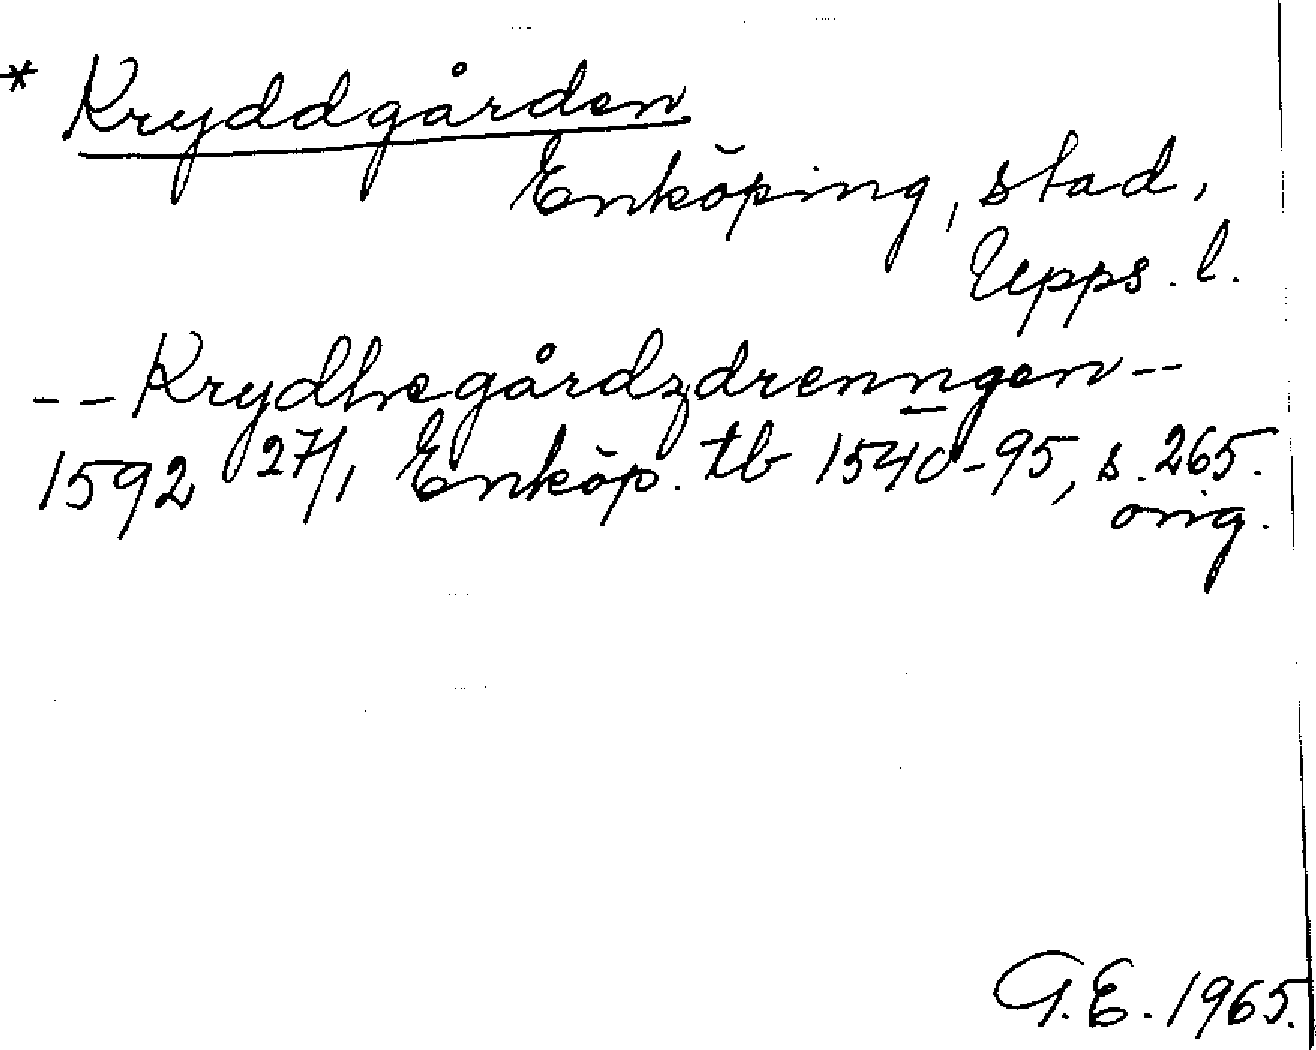 * Kryddgården
Enköping, stad,
Upps. l.
-- Krydhegårdzdrenngen --
1592 27/1, Enköp. tb 1540-95, s. 265.
orig.
G.E. 1965.